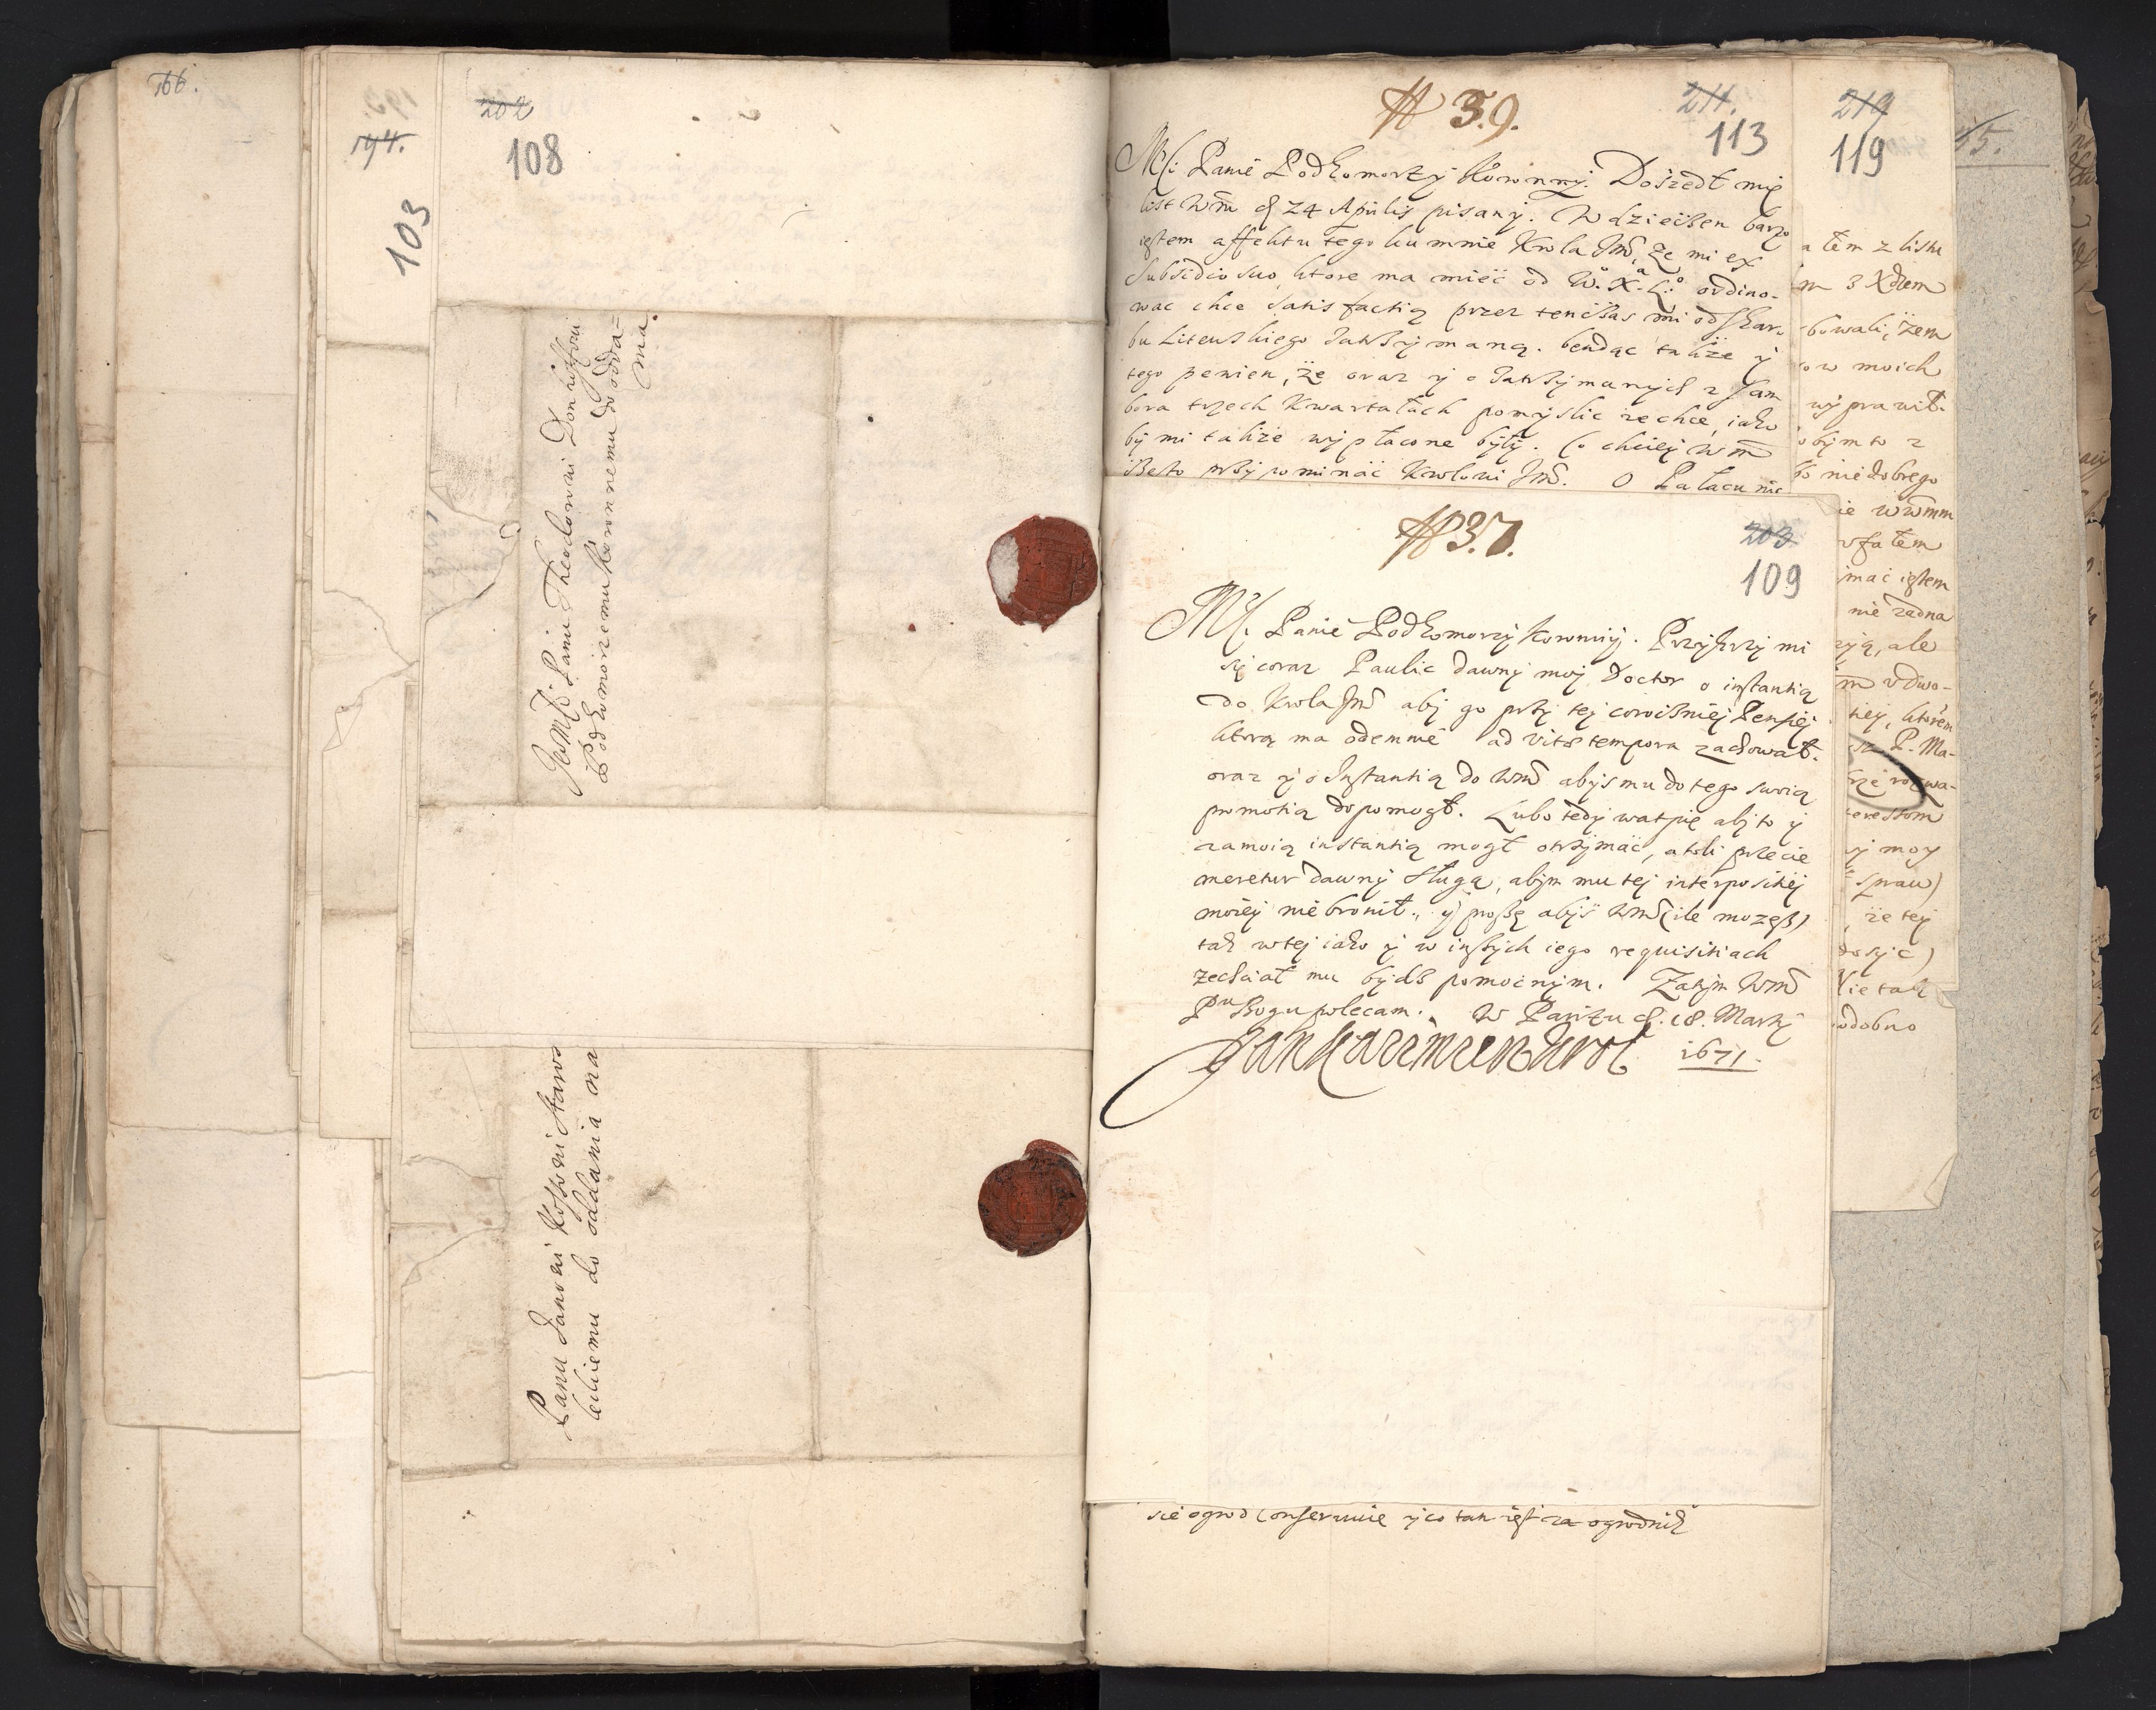 166.
194.
103
202
108
JeoMści Panu Theodorowi Donhoffowi
Podkomorzemu Koronnemu do odda=
nia.
Panu Janowi
leckiemu do oddania na
N 39.
211.
113
Mści Panie Podkomorzy Koronny. Doszedł mię
list Wm d 24 Aprilis pisany. Wdzięcißen barzo
iestem affektu tego ku mnie Krola Jmści, że mi ex
subsidio suo, ktore ma mieć od W. X. L. ordino-
wac chce satisfactią przez tenczas mi od skar-
bu Litewskiego zatrzymaną. bendąc także y
tego pewien, że oraz y o zatrzymanych z Sam
bora trzech Kwartałach pomyslic zechce, iako
by mi także wypłacone były. Co chciey Wm
często przypominać Krolowi Jmści. O Pałacu nic
219
119
15.
atem z listu
bowali, żem
ow moich
wyprawił.
obym to z
bo niedobrego
ie wmm
ufałem
mać iestem
nie żadna
ale
m u dwo-
kiey, ktorem
P. Ma-
teressom
sy moy
spraw)
że tey
dosyc)
Nie tak
odobno
N 37.
203
109
Mści Panie Podkomorzy Koronny. Przykrzy mi
sy coraz Paulic dawny moy Doctor o instantią
do Krola Jmści aby go przy tey coroczniey Pensiey
ktorą ma odemnie ad vitæ tempora zachował.
oraz y o Instantią do Wmści abys mu do tego swoią
promotią dopomogł. Lubo tedy watpię aby to y
za moią instantią mogł otrzymać, atoli przecie
meretur dawny sługa, abym mu tey interpositiey
moiey nie bronił., y proszę abyś Wmść (ile mozesz)
tak w tey iako y w inszych iego requisitiach
zechciał mu bydź pomocnym. Zatym Wmści
Pnu Bogu polecam. W Paryżu d. 18. Martij
Jan Kazimierz Krol 1671.
sie ogrod conserwuie y co tam iest za ogrodnik